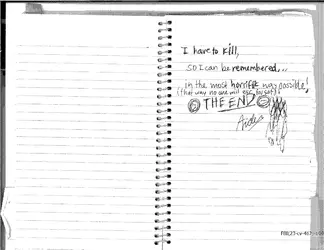 I have to kill,
so I can be remembered...
in the most horrific way possible!
(that way no one will ever forget)
THE END
Aiden